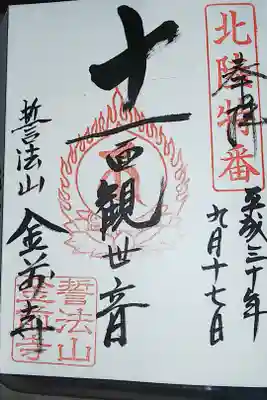 北陸特番
奉拝
平成三十年
九月十七日
十一面観世音
誓法山
金前寺
誓法山
金前寺